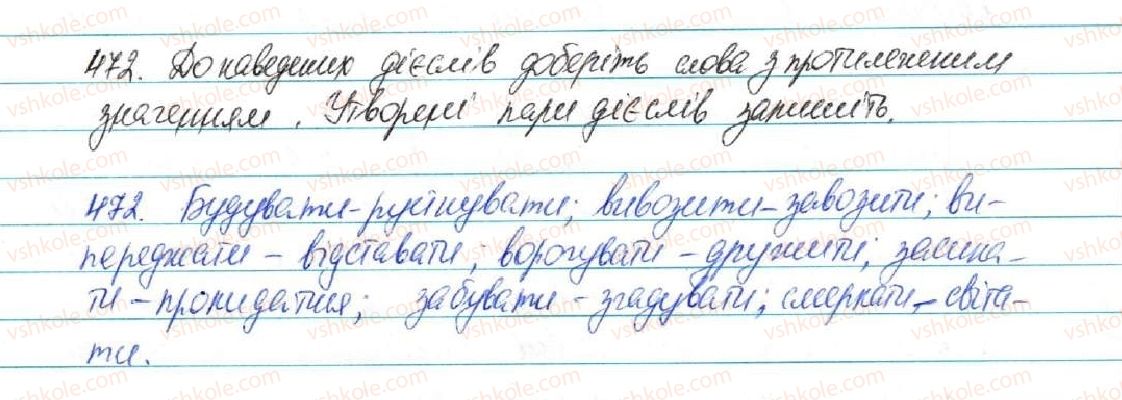 472. До наведених дієслів доберіть слова з протилежним
значенням. Утворені пари дієслів запишіть.
472. Будувати - руйнувати; вивозити - завозити; ви-
переджати - відставати; ворогувати - дружити; засина-
ти - прокидатися; забувати - згадувати; смеркати - світа-
ти.